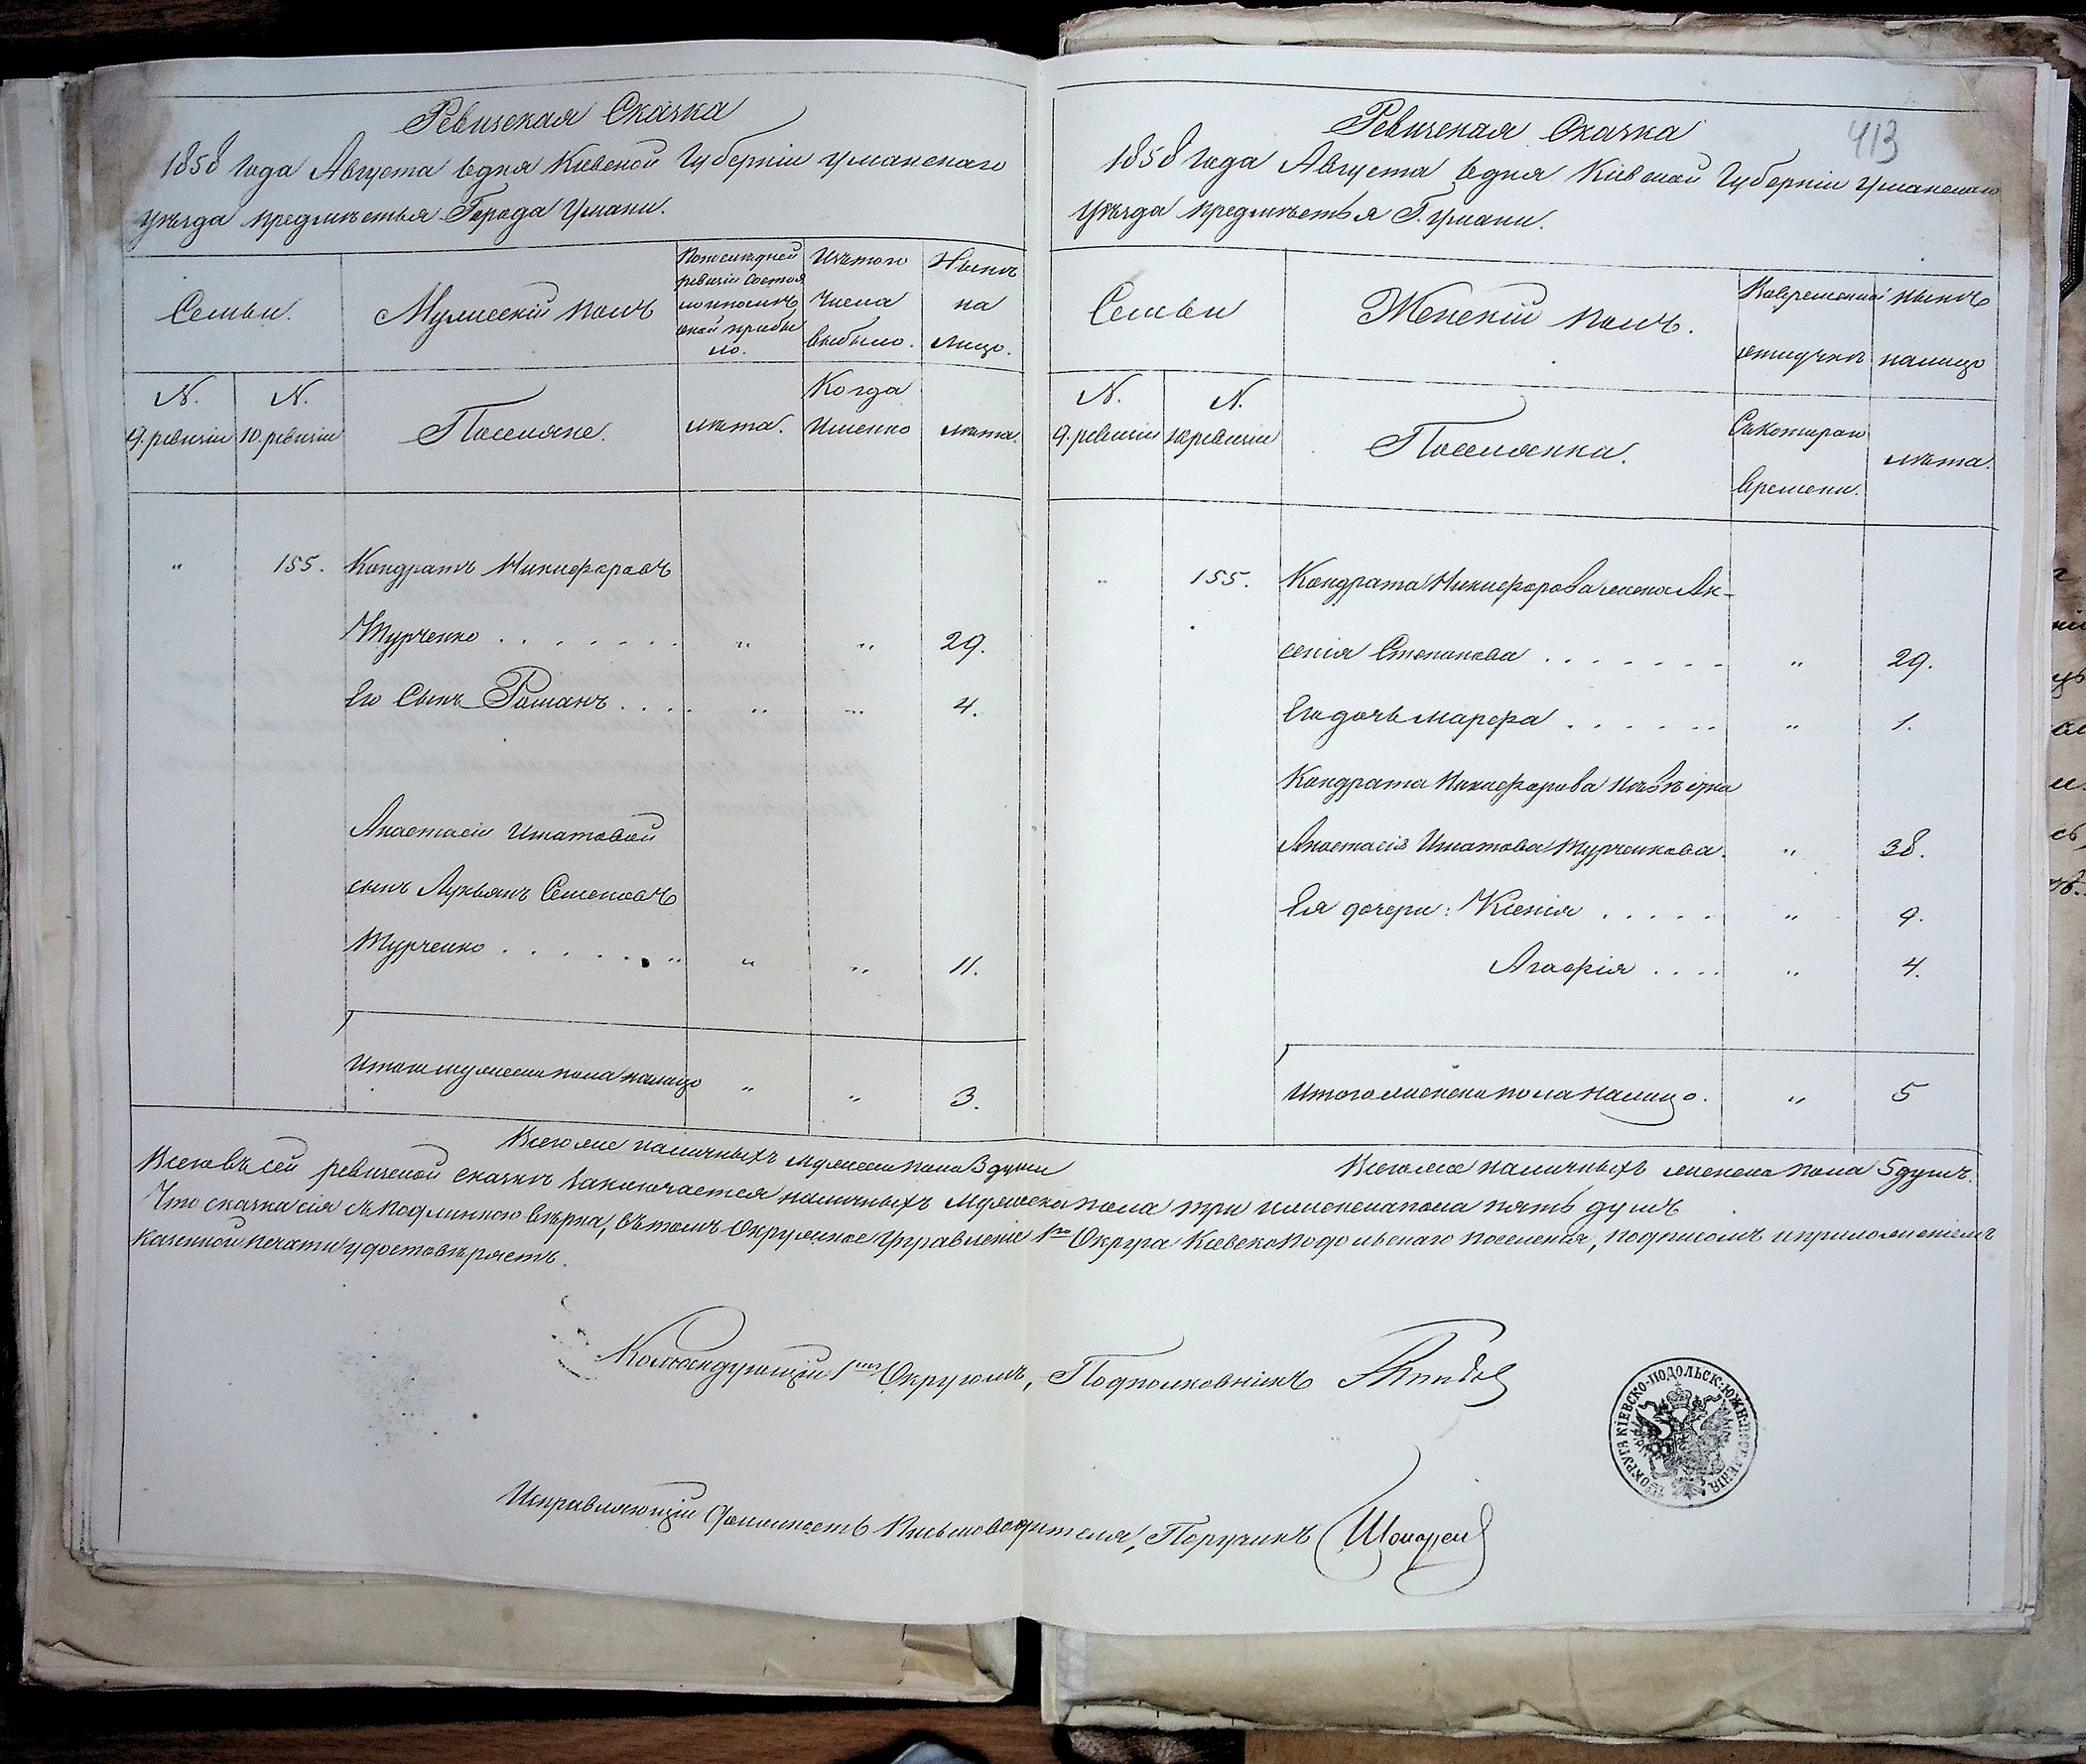 Ревизская Сказка
1858 года Августа дня Кіевской Губерніи Уманскаго
уѣзда предмѣстья Города Умани.
Семьи.
Мужескій полъ
По последней
ревизіи состоя
ло и послѣ
оной прибы
ло.
Изъ того
числа
выбыло.
Нынѣ
на
лицо.
N.
9. ревизіи
N.
10. ревизіи
Поселяне.
лѣта.
Когда
Именно
лѣта.
155. Кондратъ Никифоровъ
Турченко . . . . . . . " " 29.
Его Сынъ Романъ . . . . " " 4.
Анастасіи Игнатовой
сынъ Лукьянъ Семеновъ
Турченко . . . . . . " " 11.
Итого мужеска пола налицо " " 3.
Всего же наличныхъ мужеска пола 3 души
413
Ревизская Сказка
1858 года Августа дня Кіевской Губерніи Уманскаго
уѣзда предмѣстья Г. Умани.
Семьи
Женскій полъ.
Во временной
отлучкѣ
нынѣ
налицо
N.
9. ревизіи
N.
10 ревизіи
Поселянки.
Съ котораго
времени.
лѣта.
155. Кондрата Никифорова жена Ак-
сенія Степанова . . . . . . . " 29.
Его дочь Марфа . . . . . . " 1.
Кондрата Никифорова невѣстка
Анастасія Игнатова Турченкова. " 38.
Ея дочери: Ксенія . . . . . " 9.
Агафія . . . . " 4.
Итого женска пола налицо. " 5
Всего же наличныхъ женска пола 5 душъ.
Всего въ сей ревизской сказкѣ заключается наличныхъ мужеска пола три и женска пола пять душъ
Что сказка сія съ подлинною вѣрна, въ томъ Окружное Управленіе 1го Округа Кіевско Подольскаго поселенія, подписомъ и приложеніемъ
казенной печати удостовѣряетъ.
Командующій 1мъ Округомъ, Подполковникъ
Исправляющій Должность Письмоводителя, Поручикъ
ОКРУГА КІЕВСКО-ПОДОЛЬСК: ЮЖН: